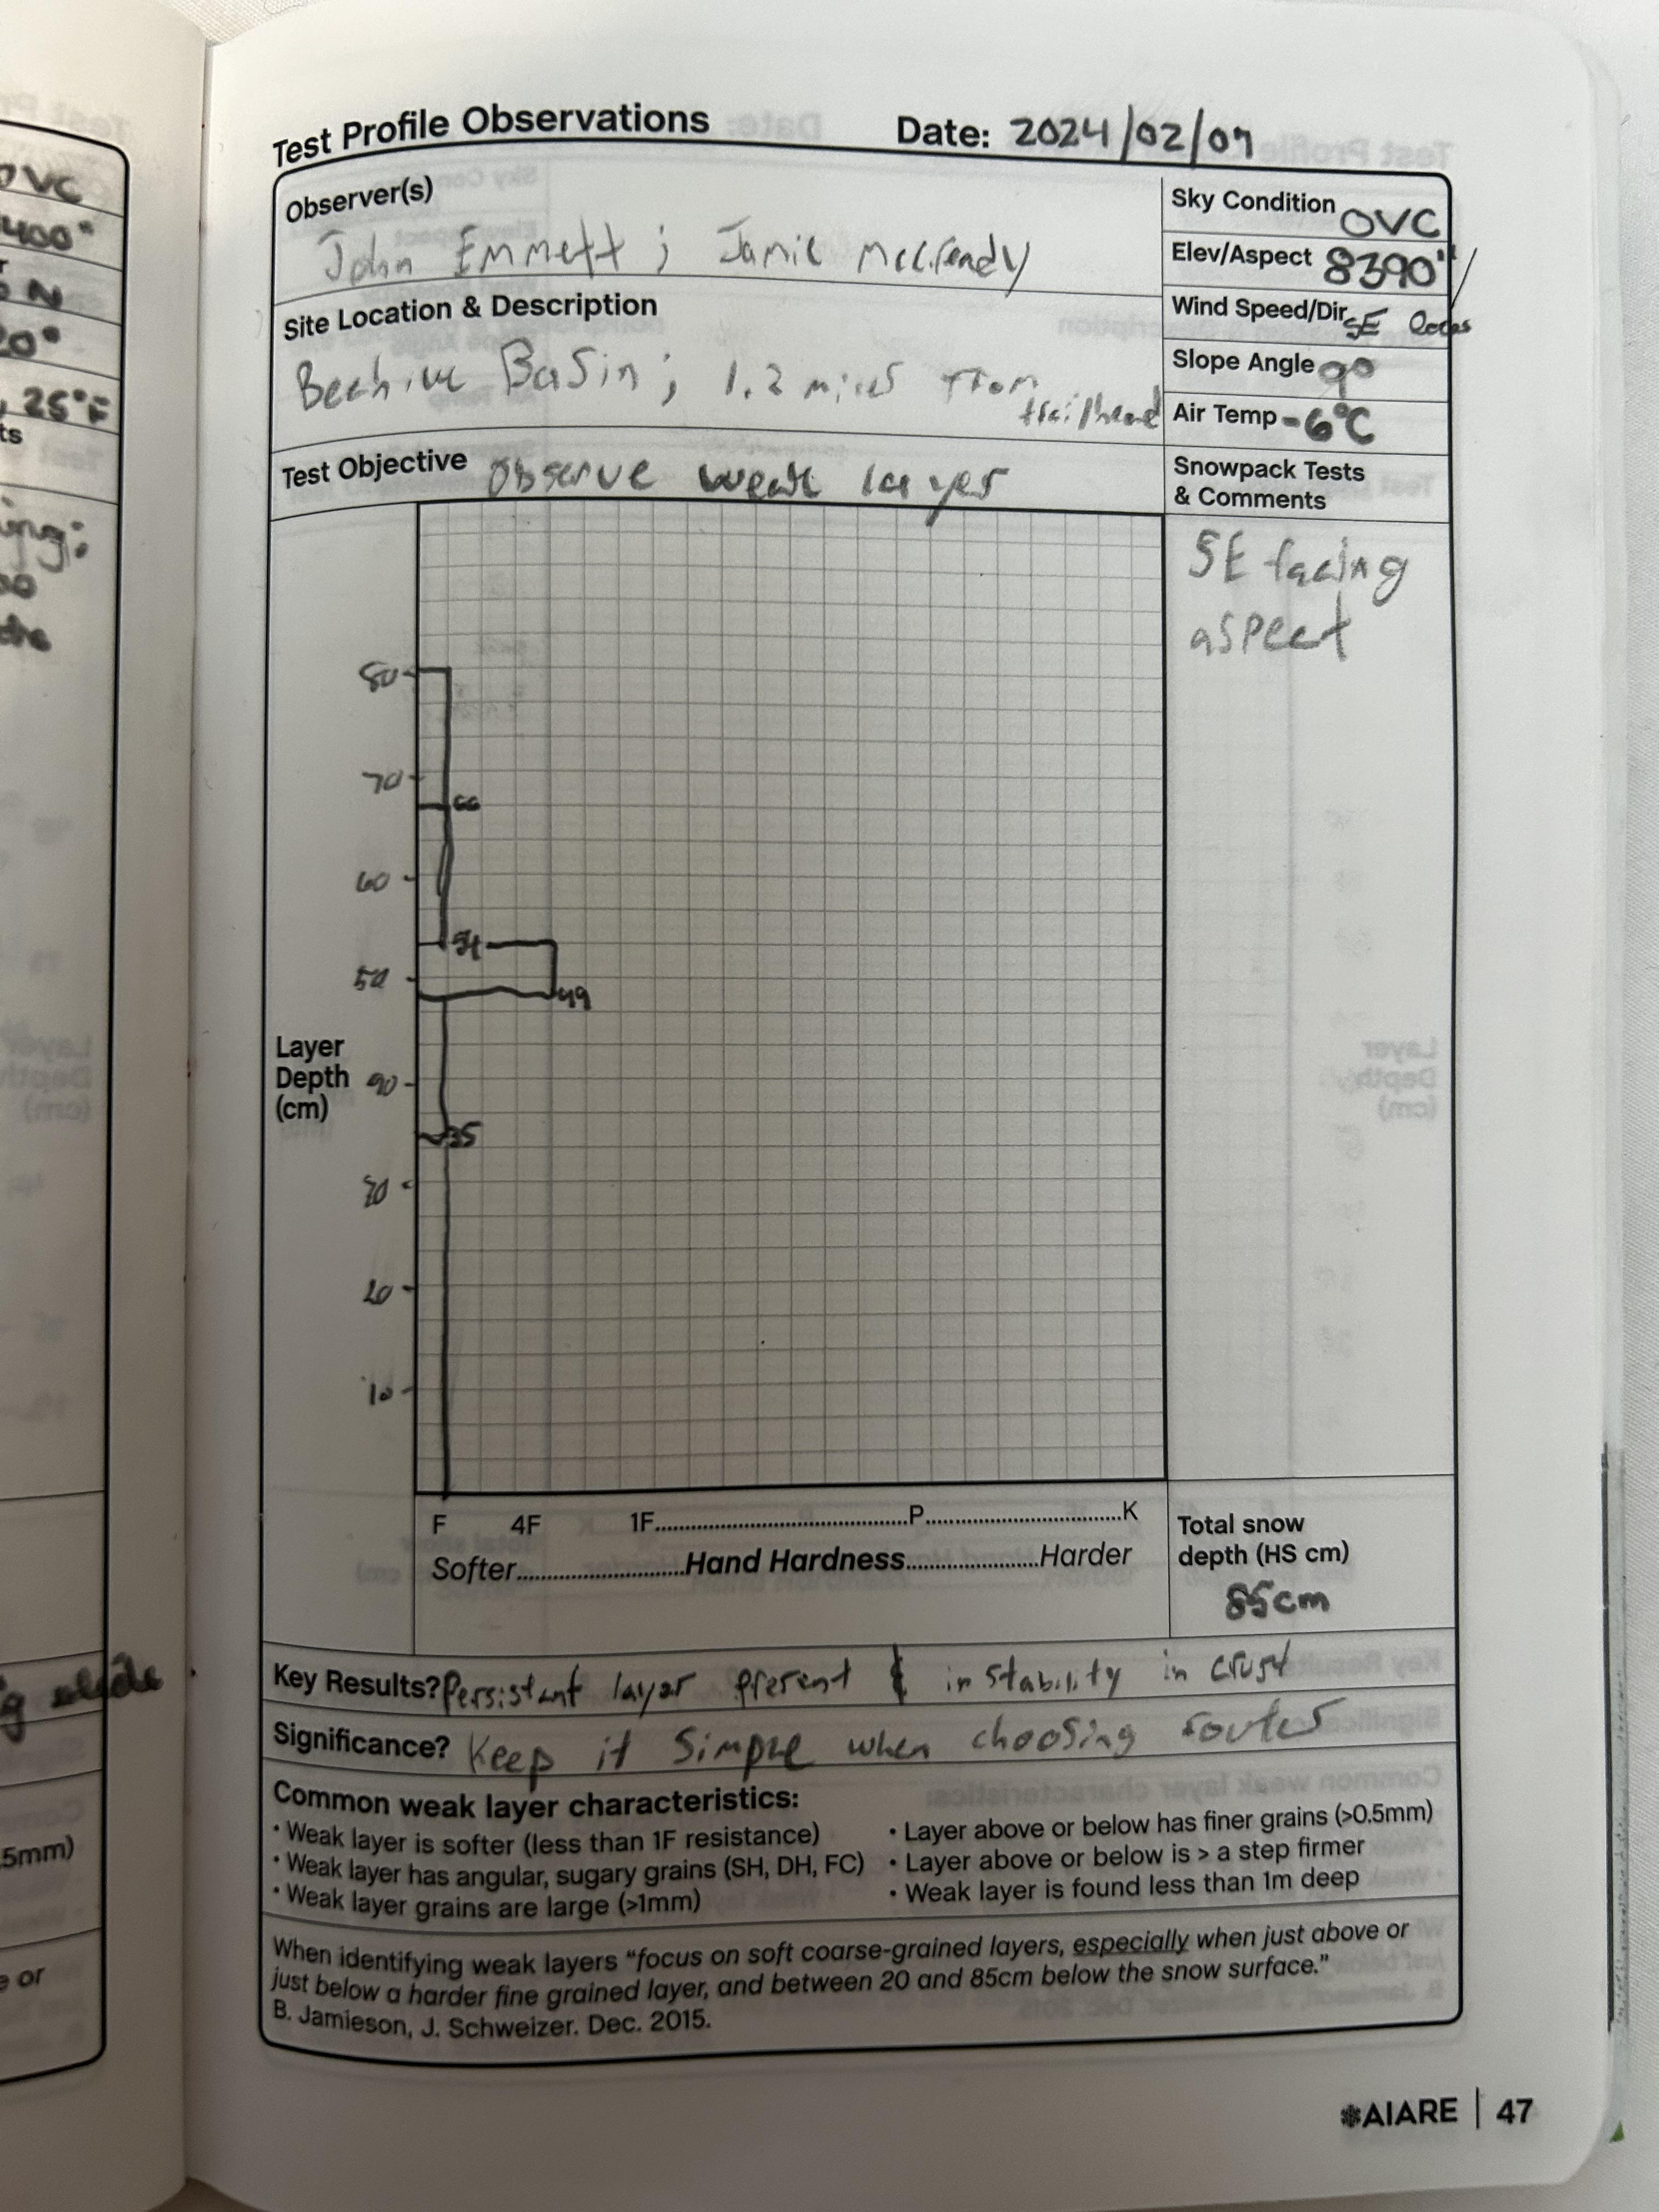 OVC
400"
N
20°
, 25°F
ts
ing:
00
the
g slide
.5mm)
e or
Test Profile Observations Date: 2024/02/07
Observer(s)
John Emmett ; Jamie
Sky Condition OVC
Elev/Aspect 8390'
Wind Speed/Dir SE
Slope Angle 9°
Air Temp -6°C
Site Location & Description
Beehive Basin ; 1.2 miles from
trailhead
Test Objective Observe weak layer
Snowpack Tests
& Comments
SE facing
aspect
80
70
66
60
54
50
49
Layer
Depth
(cm)
40
35
30
20
10
F 4F 1F..........P..........K
Softer..........Hand Hardness..........Harder
Total snow
depth (HS cm)
85cm
Key Results? Persistant layer present & instability in crust
Significance? Keep it simple when choosing routes
Common weak layer characteristics:
• Weak layer is softer (less than 1F resistance)
• Weak layer has angular, sugary grains (SH, DH, FC)
• Weak layer grains are large (>1mm)
• Layer above or below has finer grains (>0.5mm)
• Layer above or below is > a step firmer
• Weak layer is found less than 1m deep
When identifying weak layers “focus on soft coarse-grained layers, especially when just above or
just below a harder fine grained layer, and between 20 and 85cm below the snow surface.”
B. Jamieson, J. Schweizer. Dec. 2015.
AIARE | 47